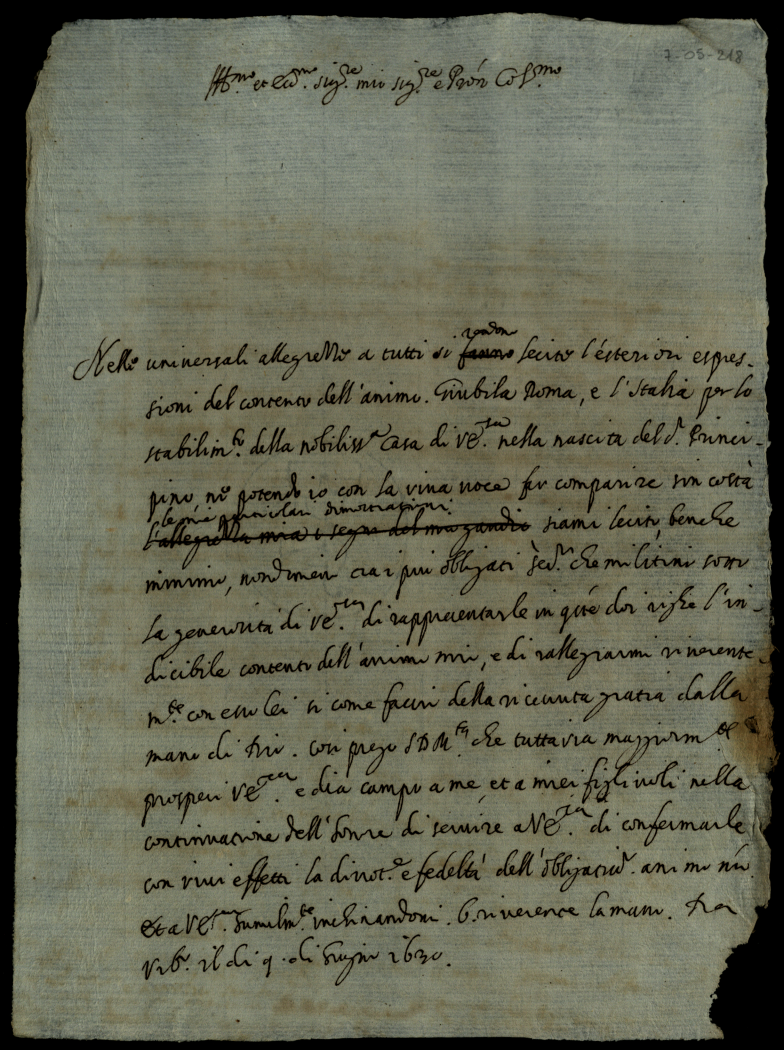 7-05-218
Ill.mo et Ecc.mo sig.re mio sig.re e Pròn Col.mo
rendon
Nelle universali allegrezze a tutti si fanno lecite l'esteriori espres-
sioni del contento dell'animo. Giubila Roma, e l'Italia per lo
stabilim.to della nobiliss.a Casa di VE.za nella nascita del S. Princi-
pino nè potendo io con la viva voce far comparire sin costà
le mie particolari dimostrationi
l'allegrezza mia i segni del mio gaudio siami lecito, benche
minimo, nondimen tra i più obligati che militino sotto
la generosità di VE.za di rappresentarle in q.te doi righe l'in-
dicibile contento dell'animo mio, e di rallegrarmi riverente-
m.te con esso lei si come faccio della ricevuta gratia dalla
mano di Dio. Così prego SDM.tà che tuttavia maggiorm.te
prosperi VE.za e dia campo a me, et a miei figlivoli nella
continuatione dell'honore di servire a VE.za di confermarle
con vivi effetti la divot.e e fedeltà dell'obligatiss.o animo mio
et a VE.za humilm.te inchinandomi. b. riverente la mano. Da
Urb.o il di 9. di Giugno 1630.